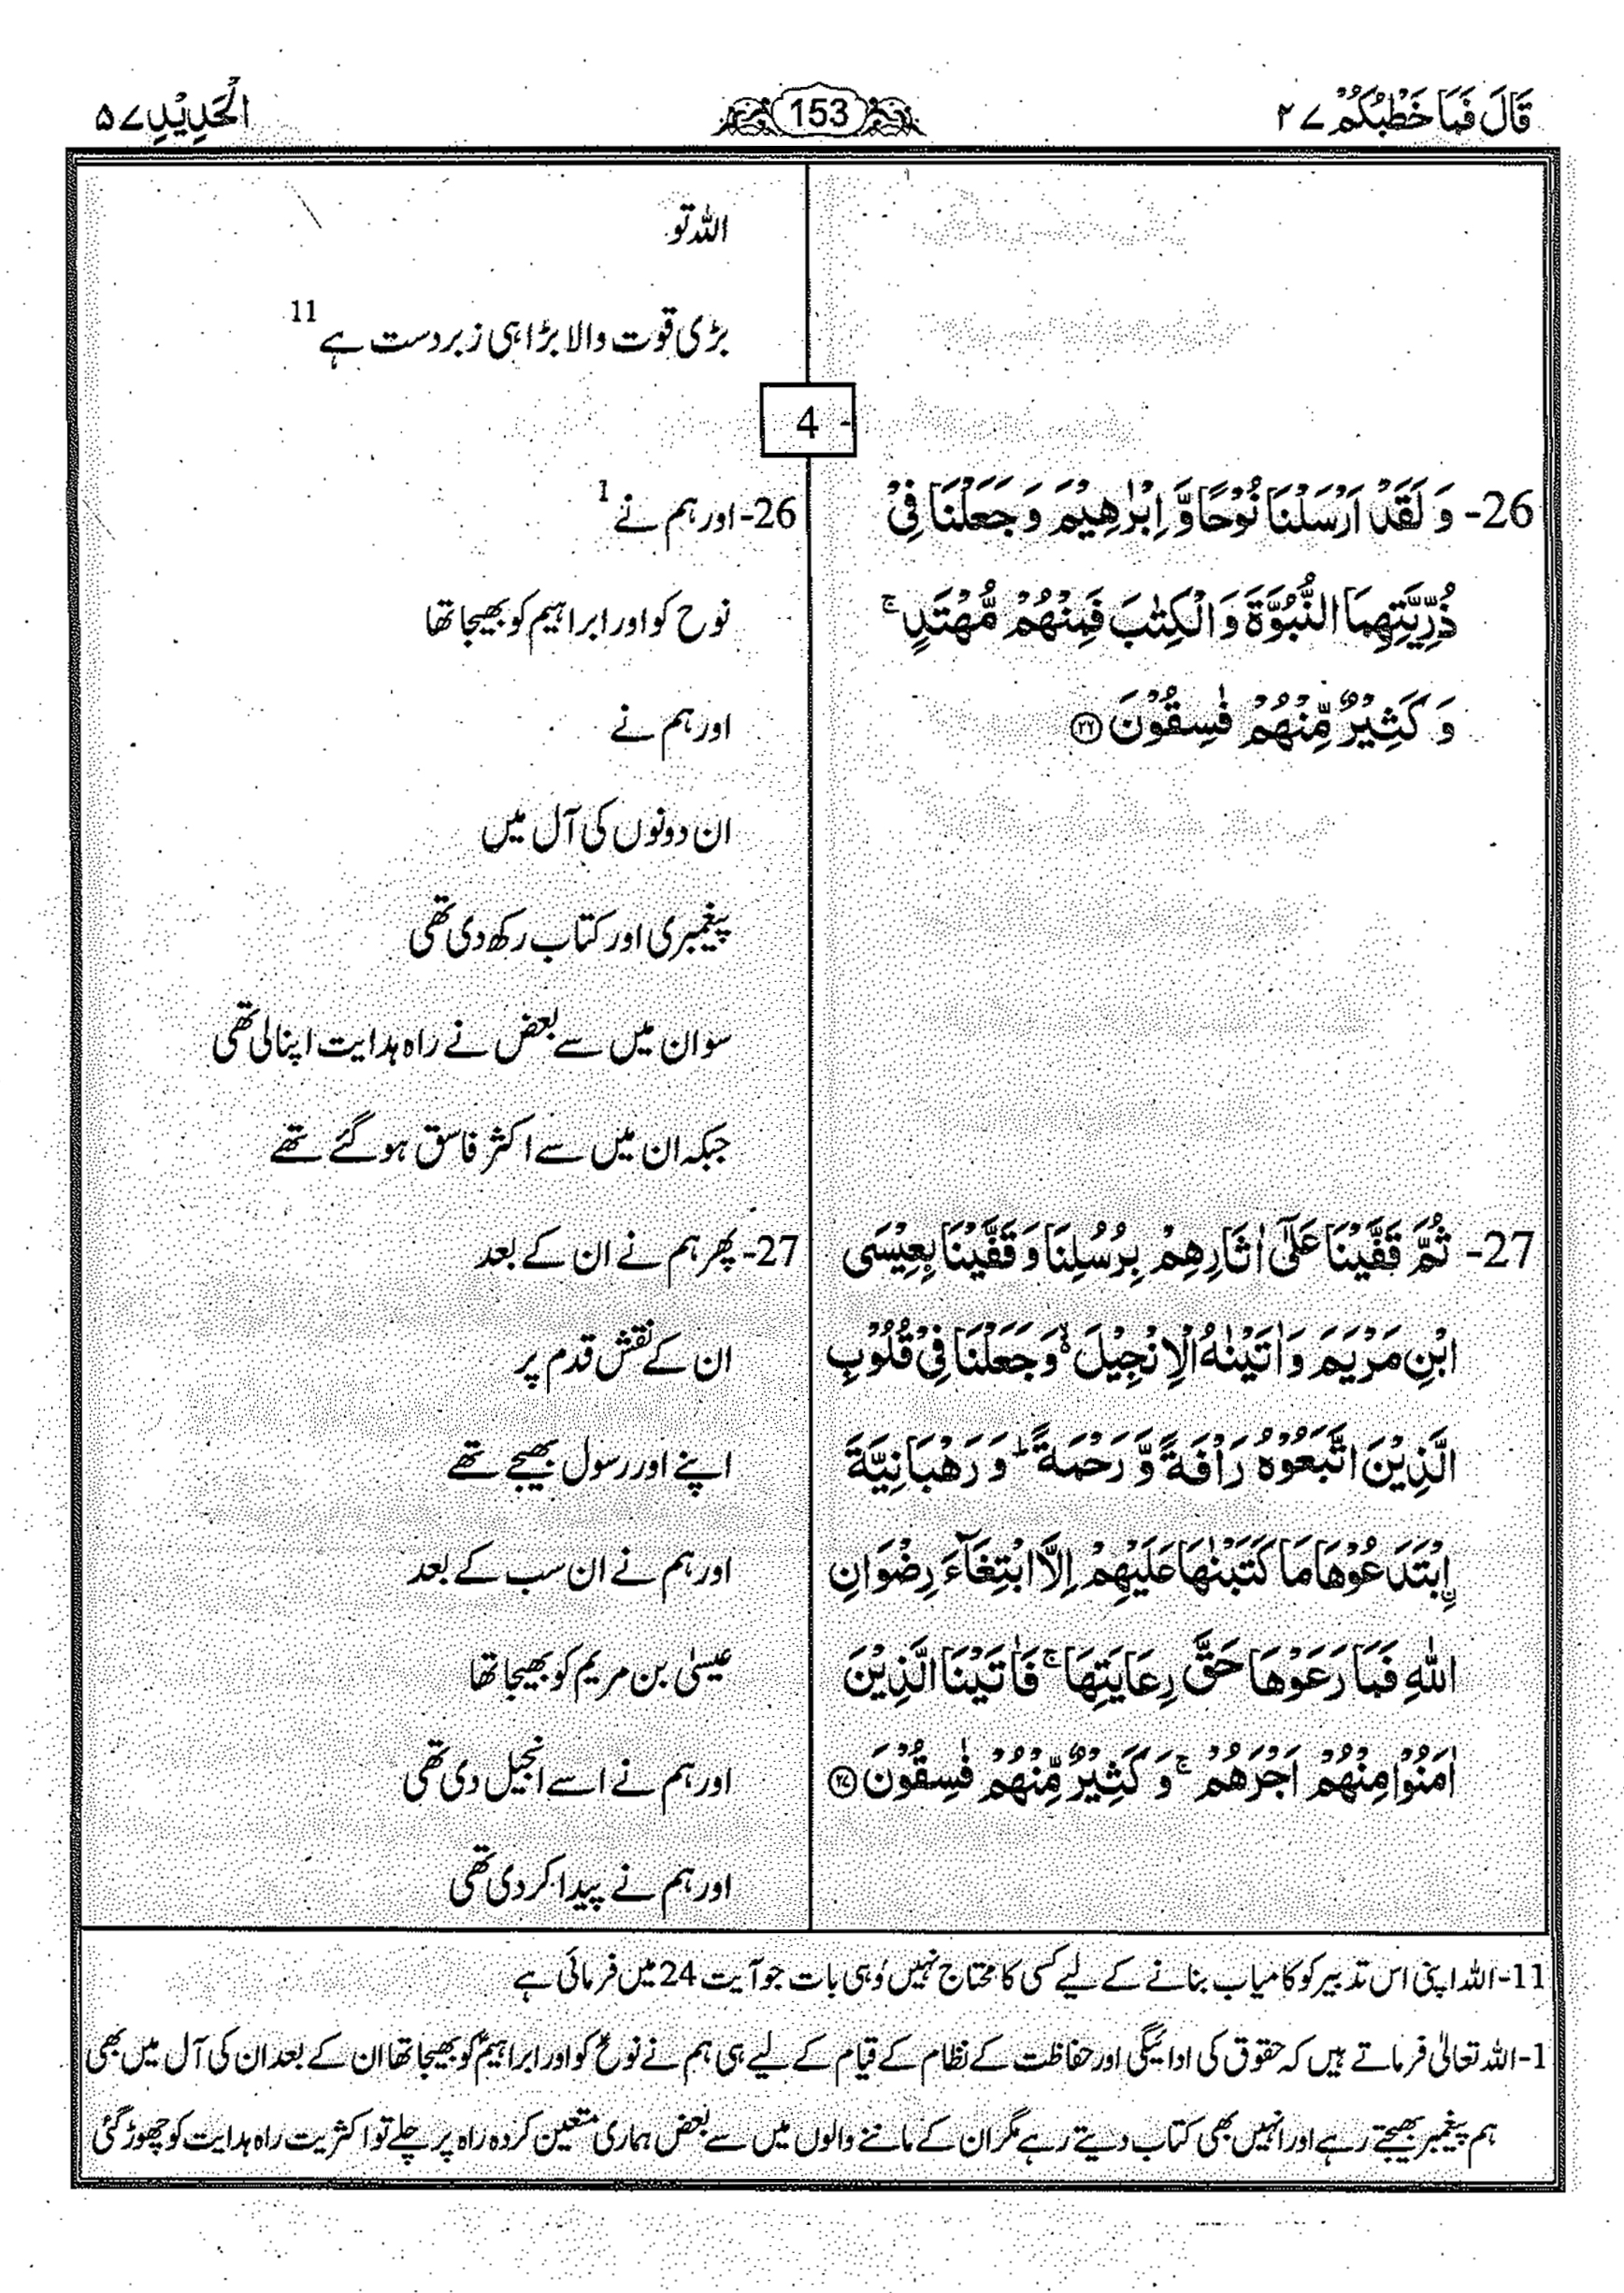 قَالَ فَمَا خَطْبُكُمْ ٢٧
153
اَلْحَدِيْدِ ٥٧
اللہ تو
بڑی قوت والا بڑا ہی زبردست ہے 11
4 -
26- وَ لَقَدْ اَرْسَلْنَا نُوْحًا وَّ اِبْرٰهِيْمَ وَ جَعَلْنَا فِيْ
ذُرِّيَّتِهِمَا النُّبُوَّةَ وَ الْكِتٰبَ فَمِنْهُمْ مُّهْتَدٍ ۚ
وَ كَثِيْرٌ مِّنْهُمْ فٰسِقُوْنَ ﴿٢٦﴾
26- اور ہم نے 1
نوح کو اور ابراہیم کو بھیجا تھا
اور ہم نے
ان دونوں کی آل میں
پیغمبری اور کتاب رکھ دی تھی
سو ان میں سے بعض نے راہ ہدایت اپنا لی تھی
جبکہ ان میں سے اکثر فاسق ہو گئے تھے
27- ثُمَّ قَفَّيْنَا عَلٰٓى اٰثَارِهِمْ بِرُسُلِنَا وَ قَفَّيْنَا بِعِيْسَى
ابْنِ مَرْيَمَ وَ اٰتَيْنٰهُ الْاِنْجِيْلَ ۙ۬ وَ جَعَلْنَا فِيْ قُلُوْبِ
الَّذِيْنَ اتَّبَعُوْهُ رَاْفَةً وَّ رَحْمَةً ؕ وَ رَهْبَانِيَّةَ
اِ۟بْتَدَعُوْهَا مَا كَتَبْنٰهَا عَلَيْهِمْ اِلَّا ابْتِغَآءَ رِضْوَانِ
اللّٰهِ فَمَا رَعَوْهَا حَقَّ رِعَايَتِهَا ۚ فَاٰتَيْنَا الَّذِيْنَ
اٰمَنُوْا مِنْهُمْ اَجْرَهُمْ ۚ وَ كَثِيْرٌ مِّنْهُمْ فٰسِقُوْنَ ﴿٢٧﴾
27- پھر ہم نے ان کے بعد
ان کے نقش قدم پر
اپنے اور رسول بھیجے تھے
اور ہم نے ان سب کے بعد
عیسیٰ بن مریم کو بھیجا تھا
اور ہم نے اسے انجیل دی تھی
اور ہم نے پیدا کر دی تھی
11- اللہ اپنی اس تدبیر کو کامیاب بنانے کے لیے کسی کا محتاج نہیں وہی بات جو آیت 24 میں فرمائی ہے
1- اللہ تعالیٰ فرماتے ہیں کہ حقوق کی ادائیگی اور حفاظت کے نظام کے قیام کے لیے ہی ہم نے نوحؑ کو اور ابراہیمؑ کو بھیجا تھا ان کے بعد ان کی آل میں بھی
ہم پیغمبر بھیجتے رہے اور انہیں بھی کتاب دیتے رہے مگر ان کے ماننے والوں میں سے بعض ہماری متعین کردہ راہ پر چلے تو اکثریت راہ ہدایت کو چھوڑ گئی